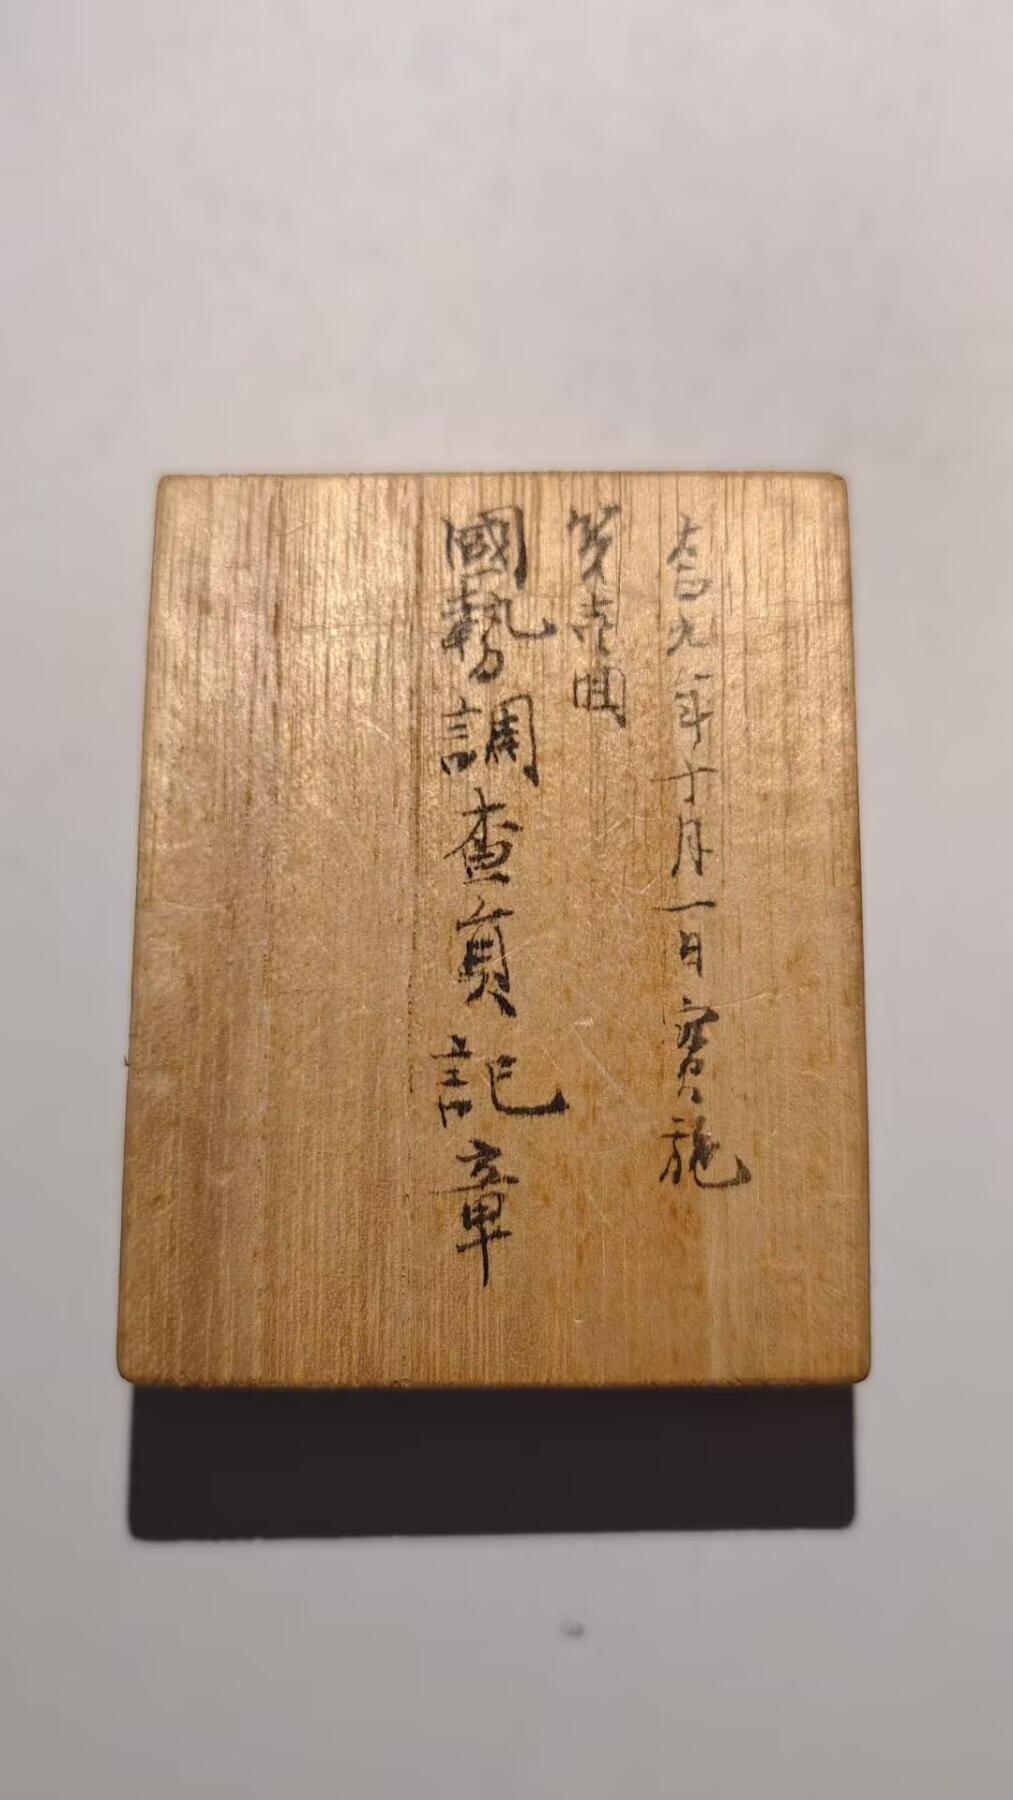 大正九年十月一日實施
第壱回
國勢調査員記章